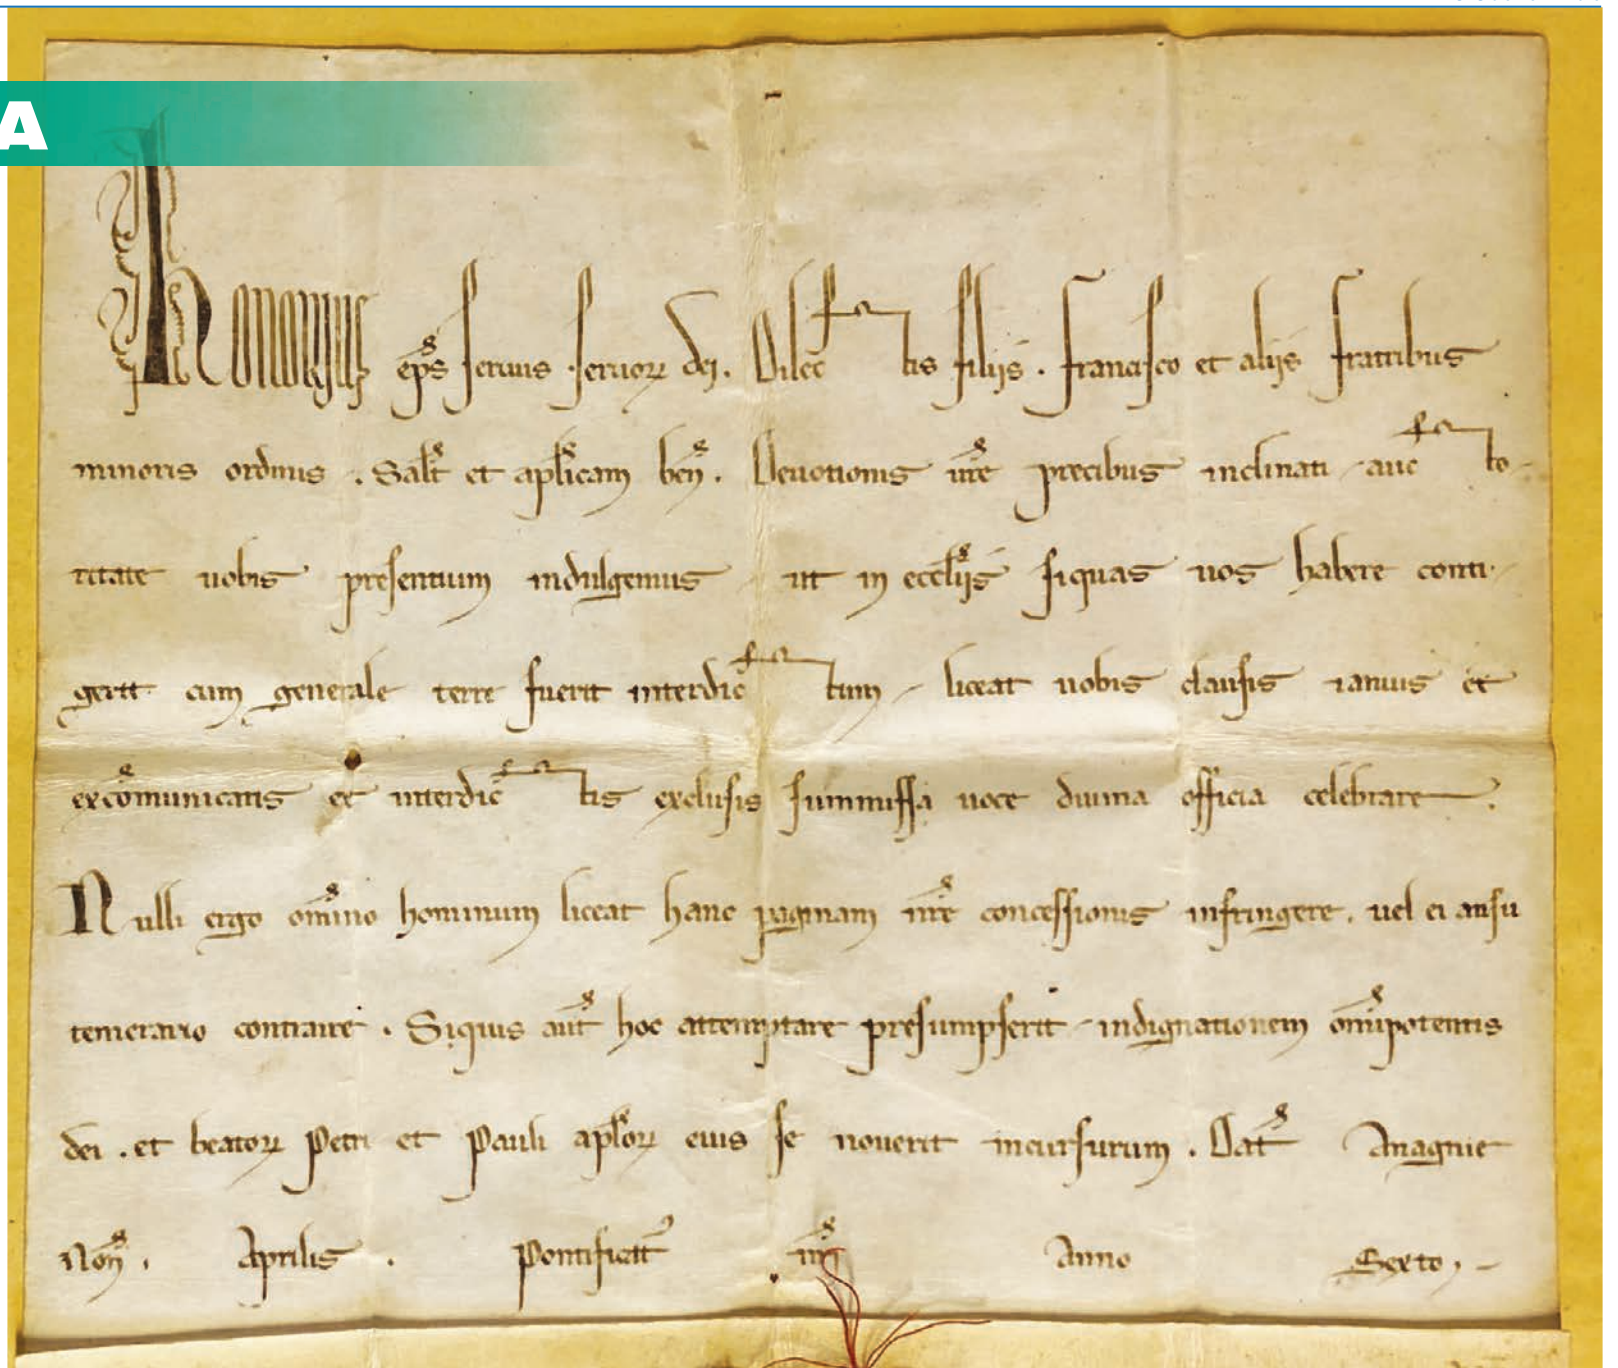 A
Honorius eps seruus seruoꝝ dei. Dilectis filijs. Francisco et alijs fratribus
minoris ordinis. Salt et aplicam ben. Deuotionis nre precibus inclinati aucto
ritate uobis presentium indulgemus ut in ecclijs siquas uos habere conti
gerit cum generale terre fuerit interdictum liceat uobis clausis ianuis et
excomunicatis et interdictis exclusis summissa uoce diuina officia celebrare.
Nulli ergo omino hominum liceat hanc paginam nre concessionis infringere. uel ei ausu
temerario contraire. Siquis aut hoc attemptare presumpserit indignationem omipotentis
dei. et beatoꝝ Petri et Pauli aploꝝ eius se nouerit incursurum. Dat Anagnie
Non. Aprilis. Pontificat nri Anno Sexto